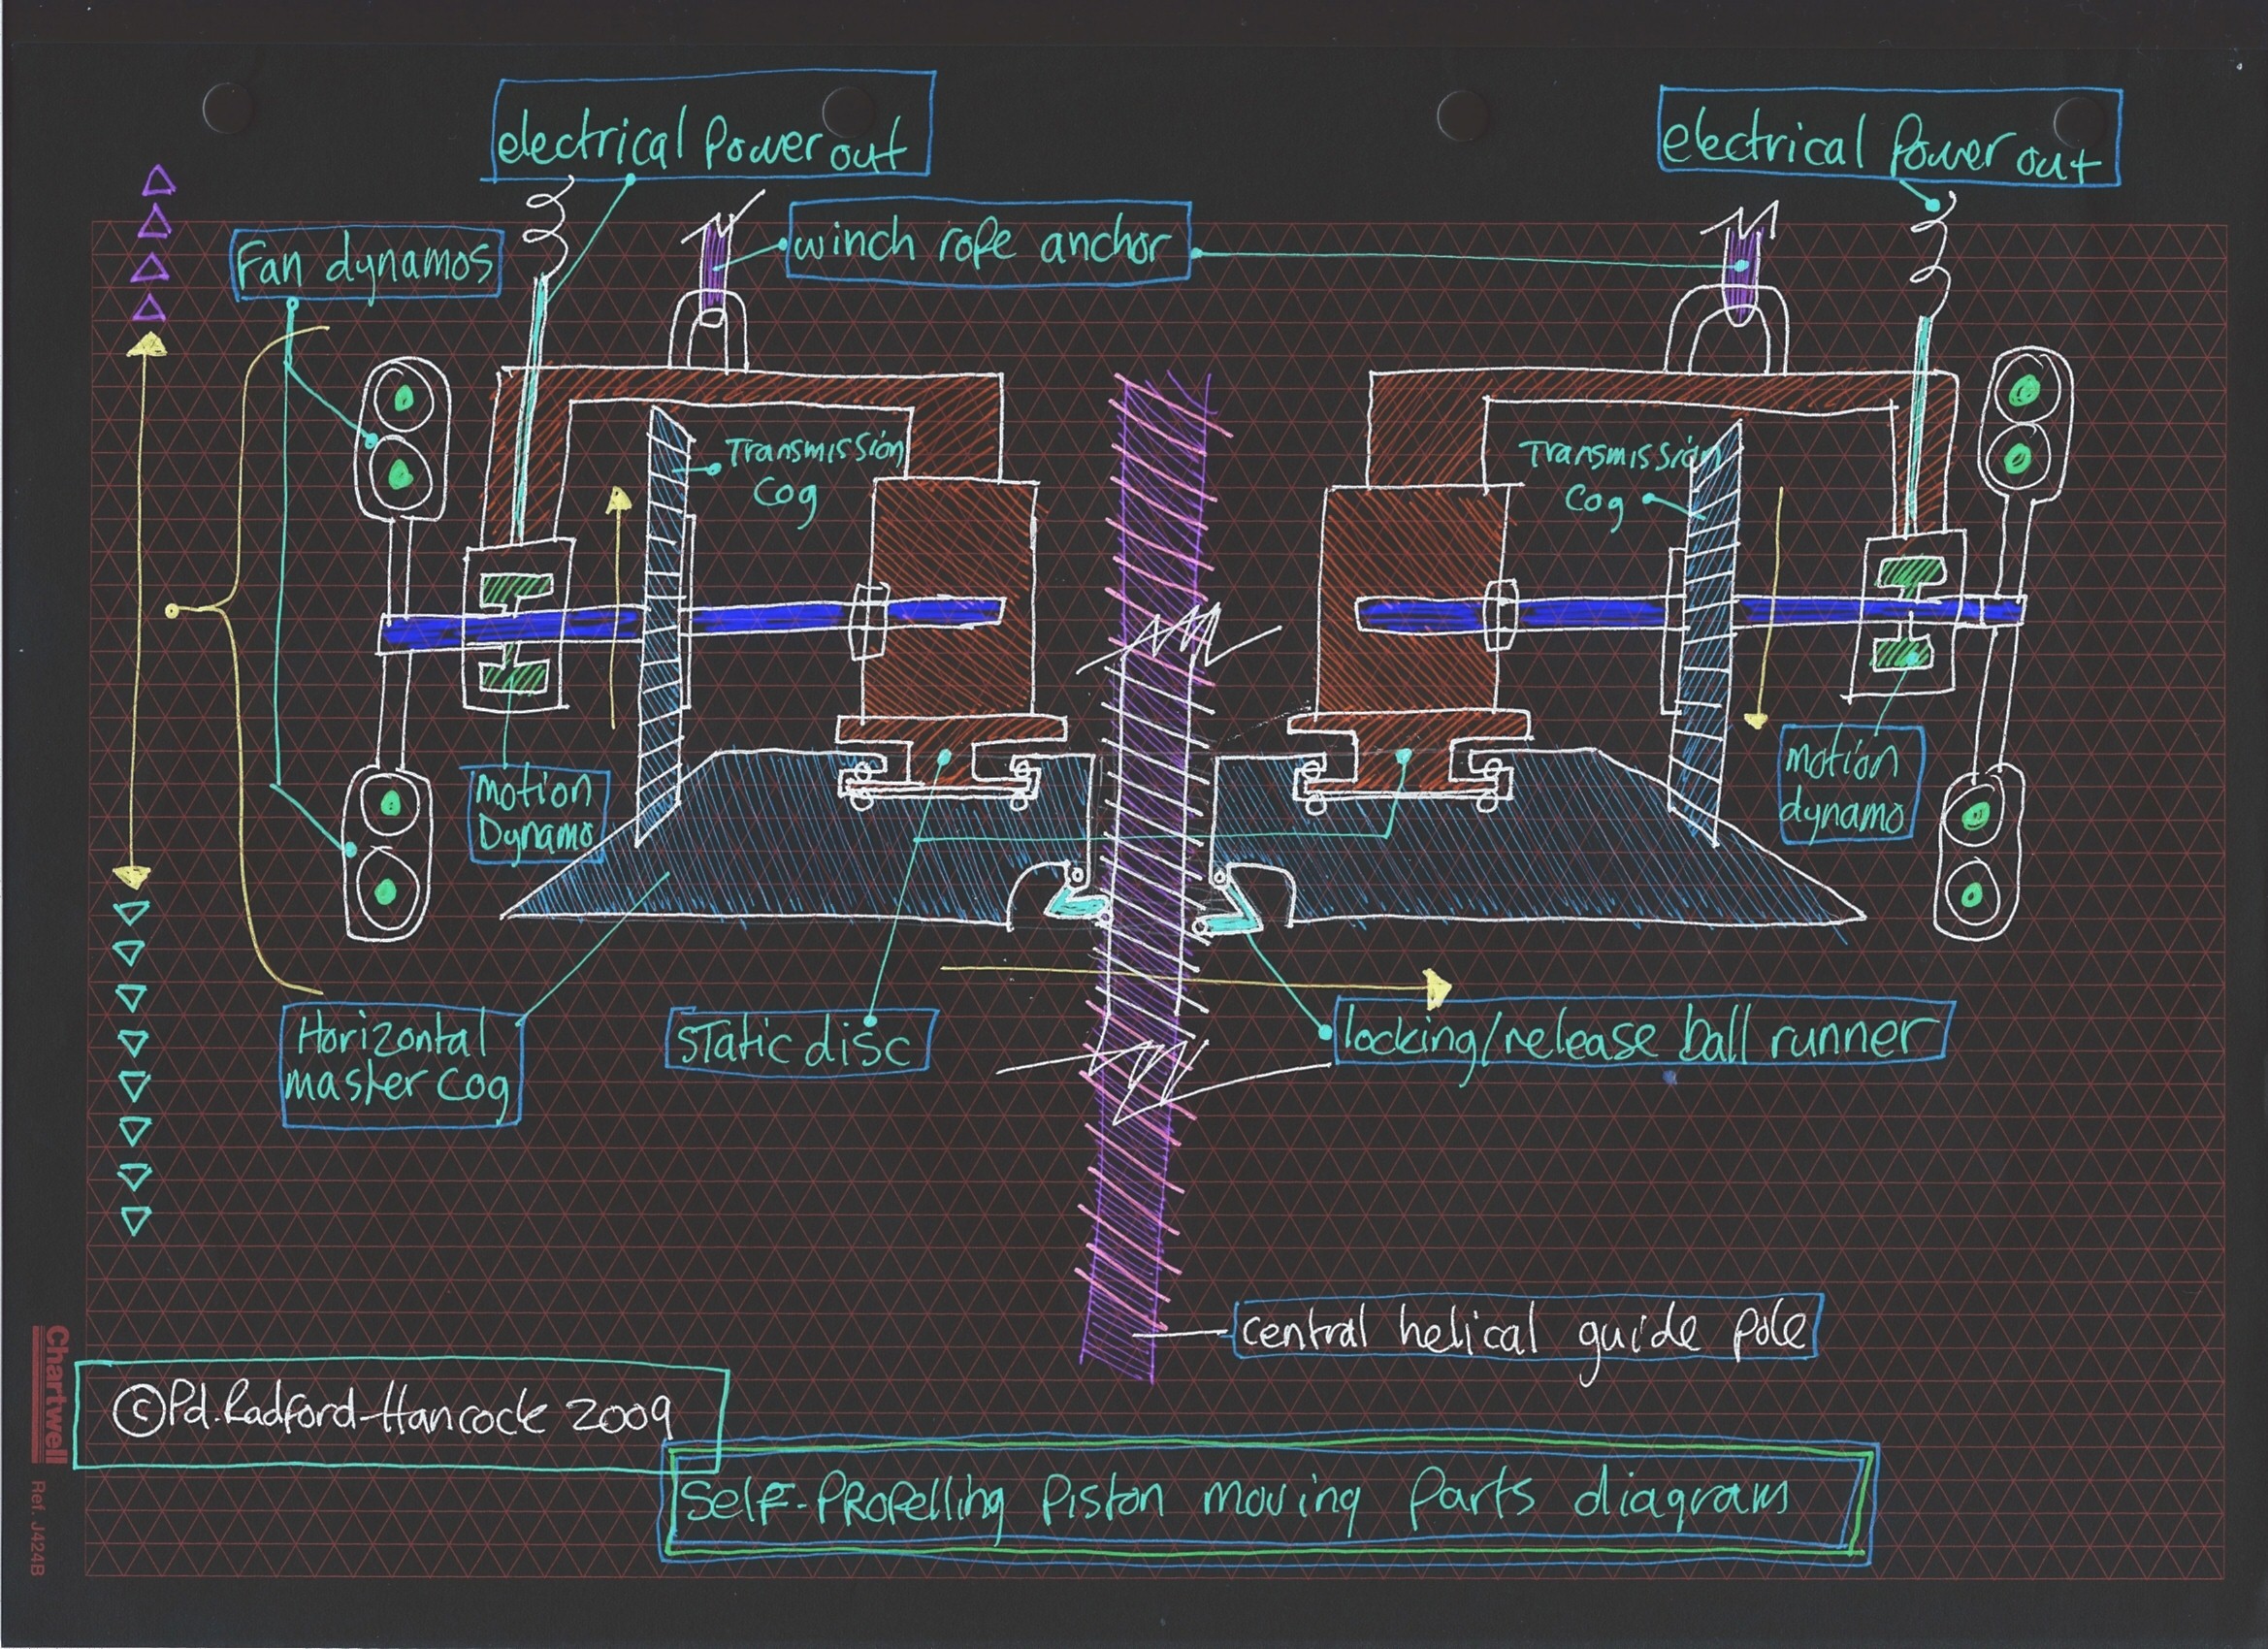 electrical power out
electrical power out
winch rope anchor
Fan dynamos
Transmission
Cog
Transmission
Cog
motion
Dynamo
motion
dynamo
Horizontal
master cog
static disc
locking/release ball runner
central helical guide pole
©Pd.Radford-Hancock 2009
Self-Propelling Piston moving parts diagram
Chartwell
Ref. J424B